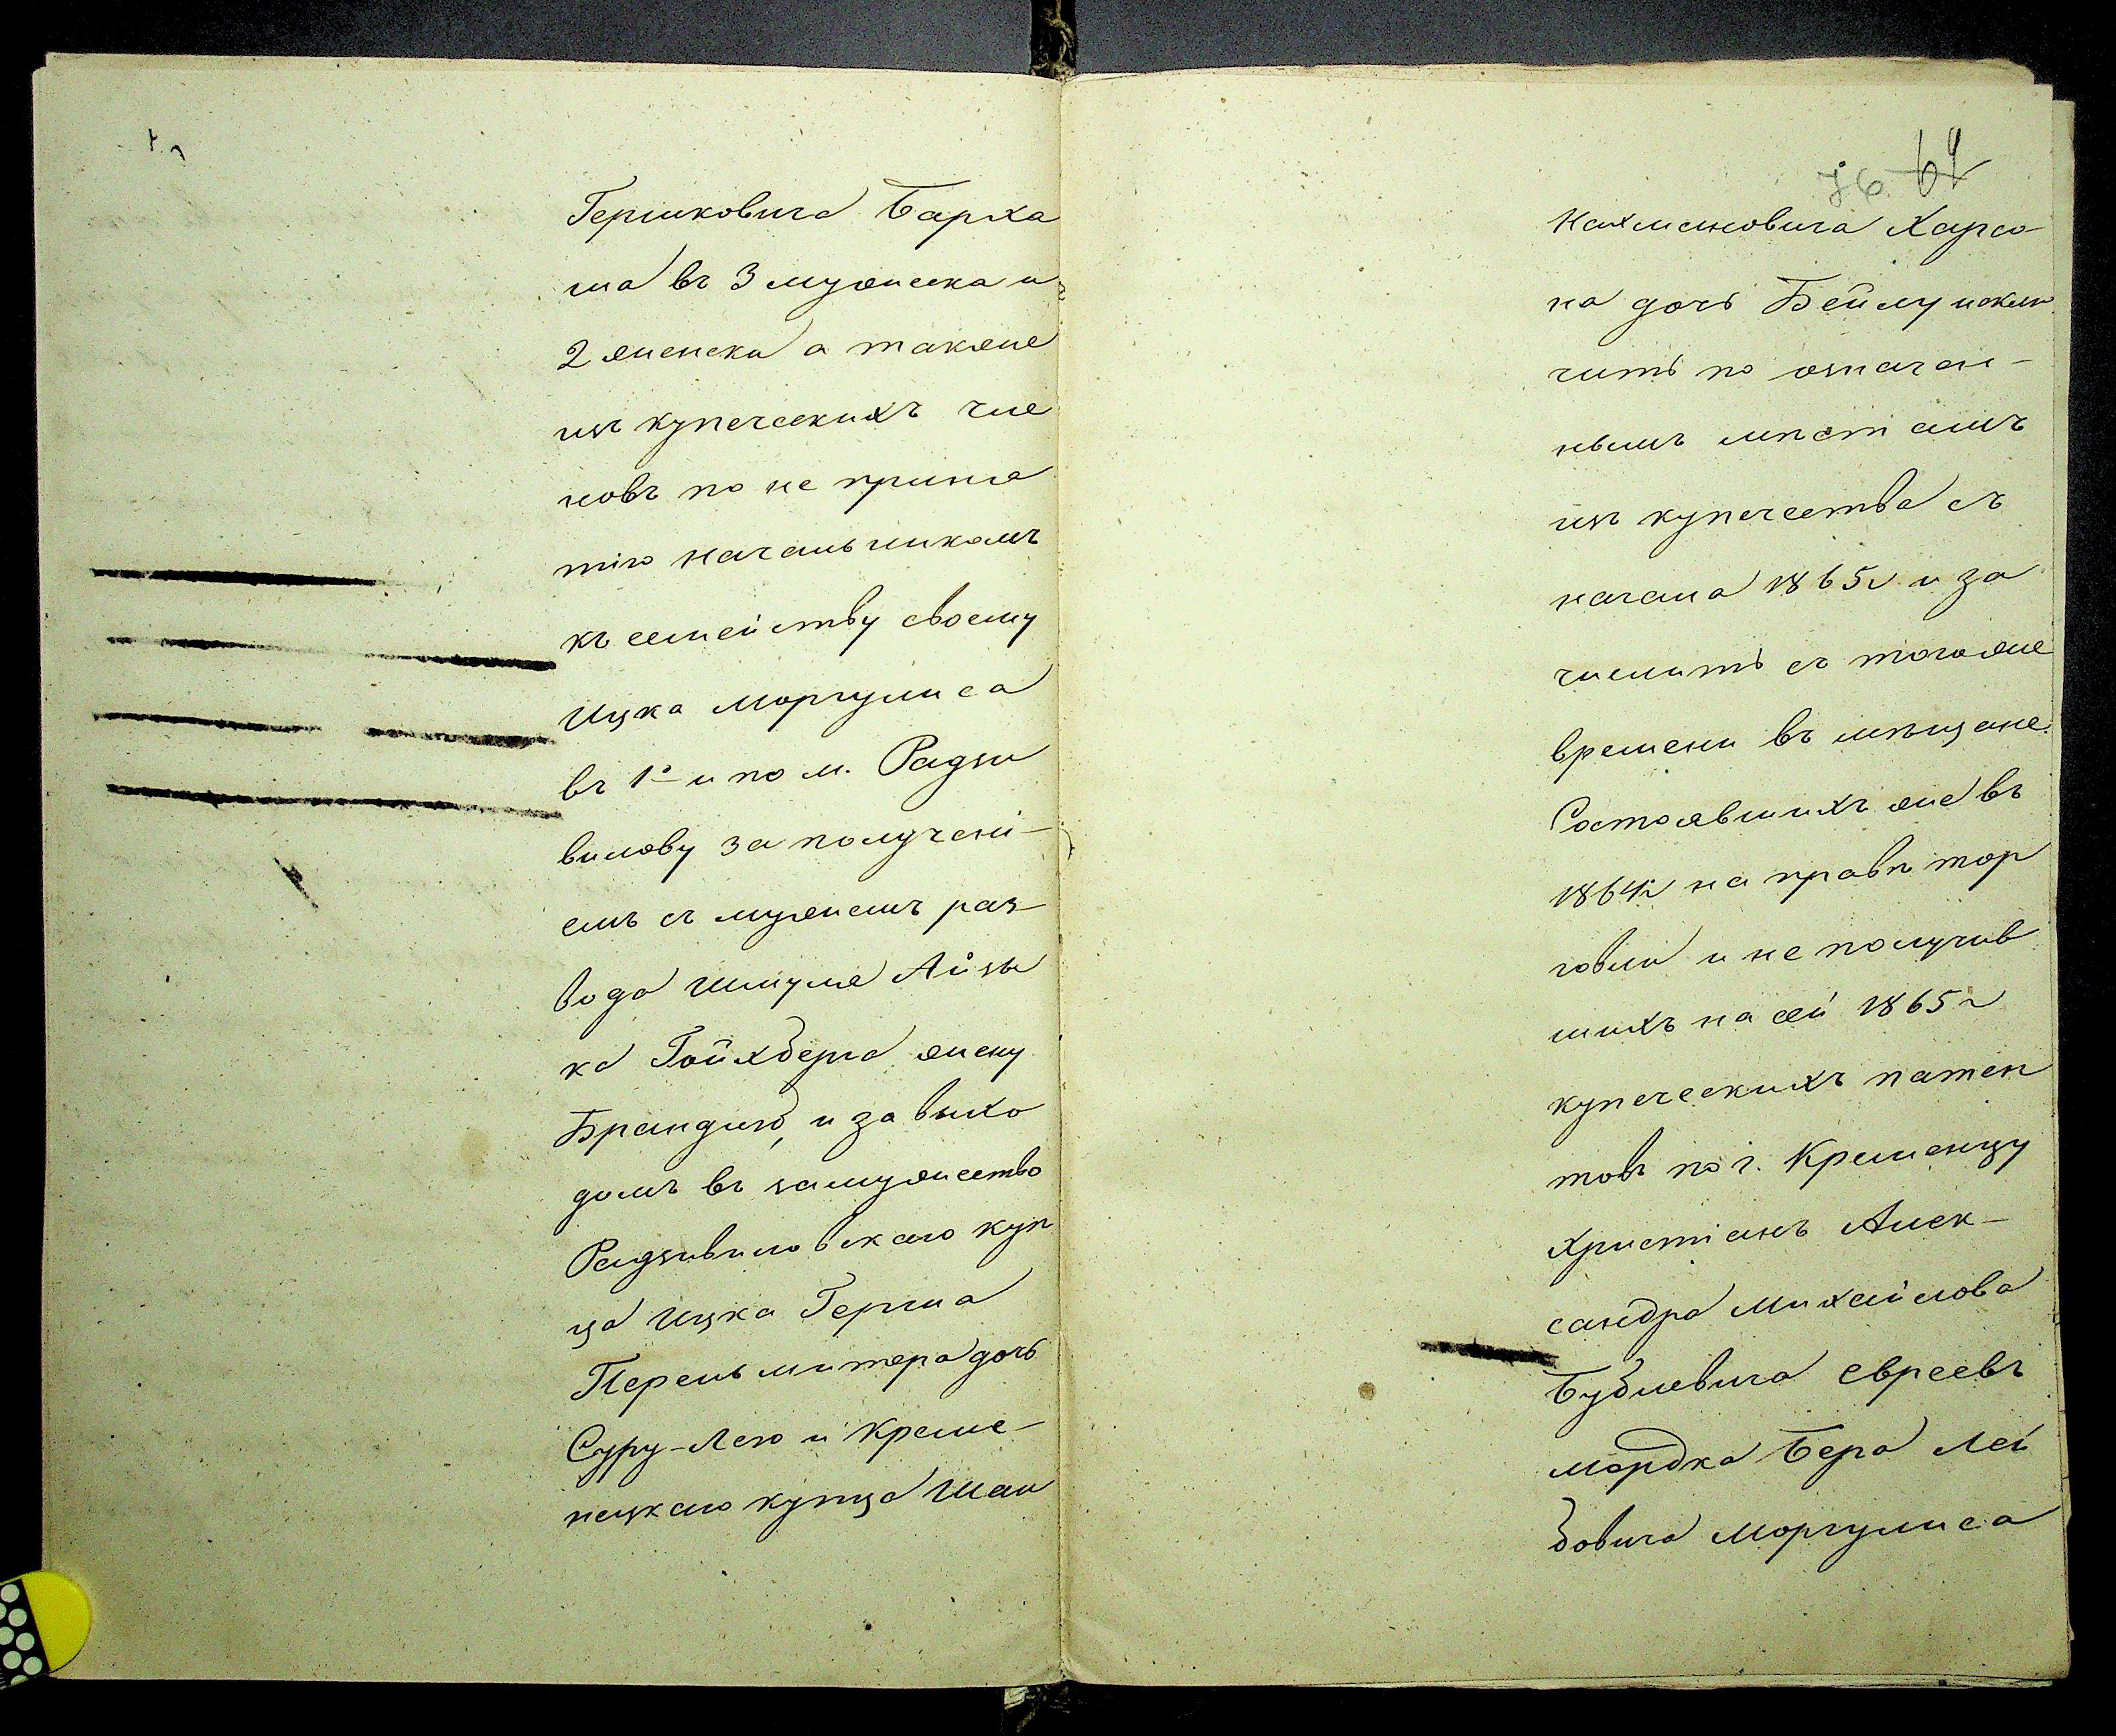 Гершковича Барха
ша въ 3 мужеска и
2 женска а также
изъ купеческихъ чле
новъ по не приня
тію начальникомъ
къ семейству своему
Ицка Моргулиса
въ 1й и по м. Радзи
вилову за полученi-
емъ съ мужемъ раз-
вода Шмуля Айзы
ка Гойхберга жену
Брандлю, и за выхо
домъ въ замужество
Радзивиловскаго куп
ца Ицка Герша
Перельмитера дочь
Суру-Лею и Креме-
нецкаго купца Шаи
76 64
Нахмановича Харсо-
на дочь Бейлу исклю
чить по означен-
нымъ мѣстамъ
изъ купечества съ
начала 1865г и за
числить съ того же
времени въ мѣщане.
Состоявшихъ же въ
1864г на правѣ тор
говли и не получив
шихъ на сей 1865г
купеческихъ патен
товъ по г. Кременцу
христіанъ Алек-
сандра Михайлова
Бублевича евреевъ
Мордка Бера Лей
бовича Моргулиса